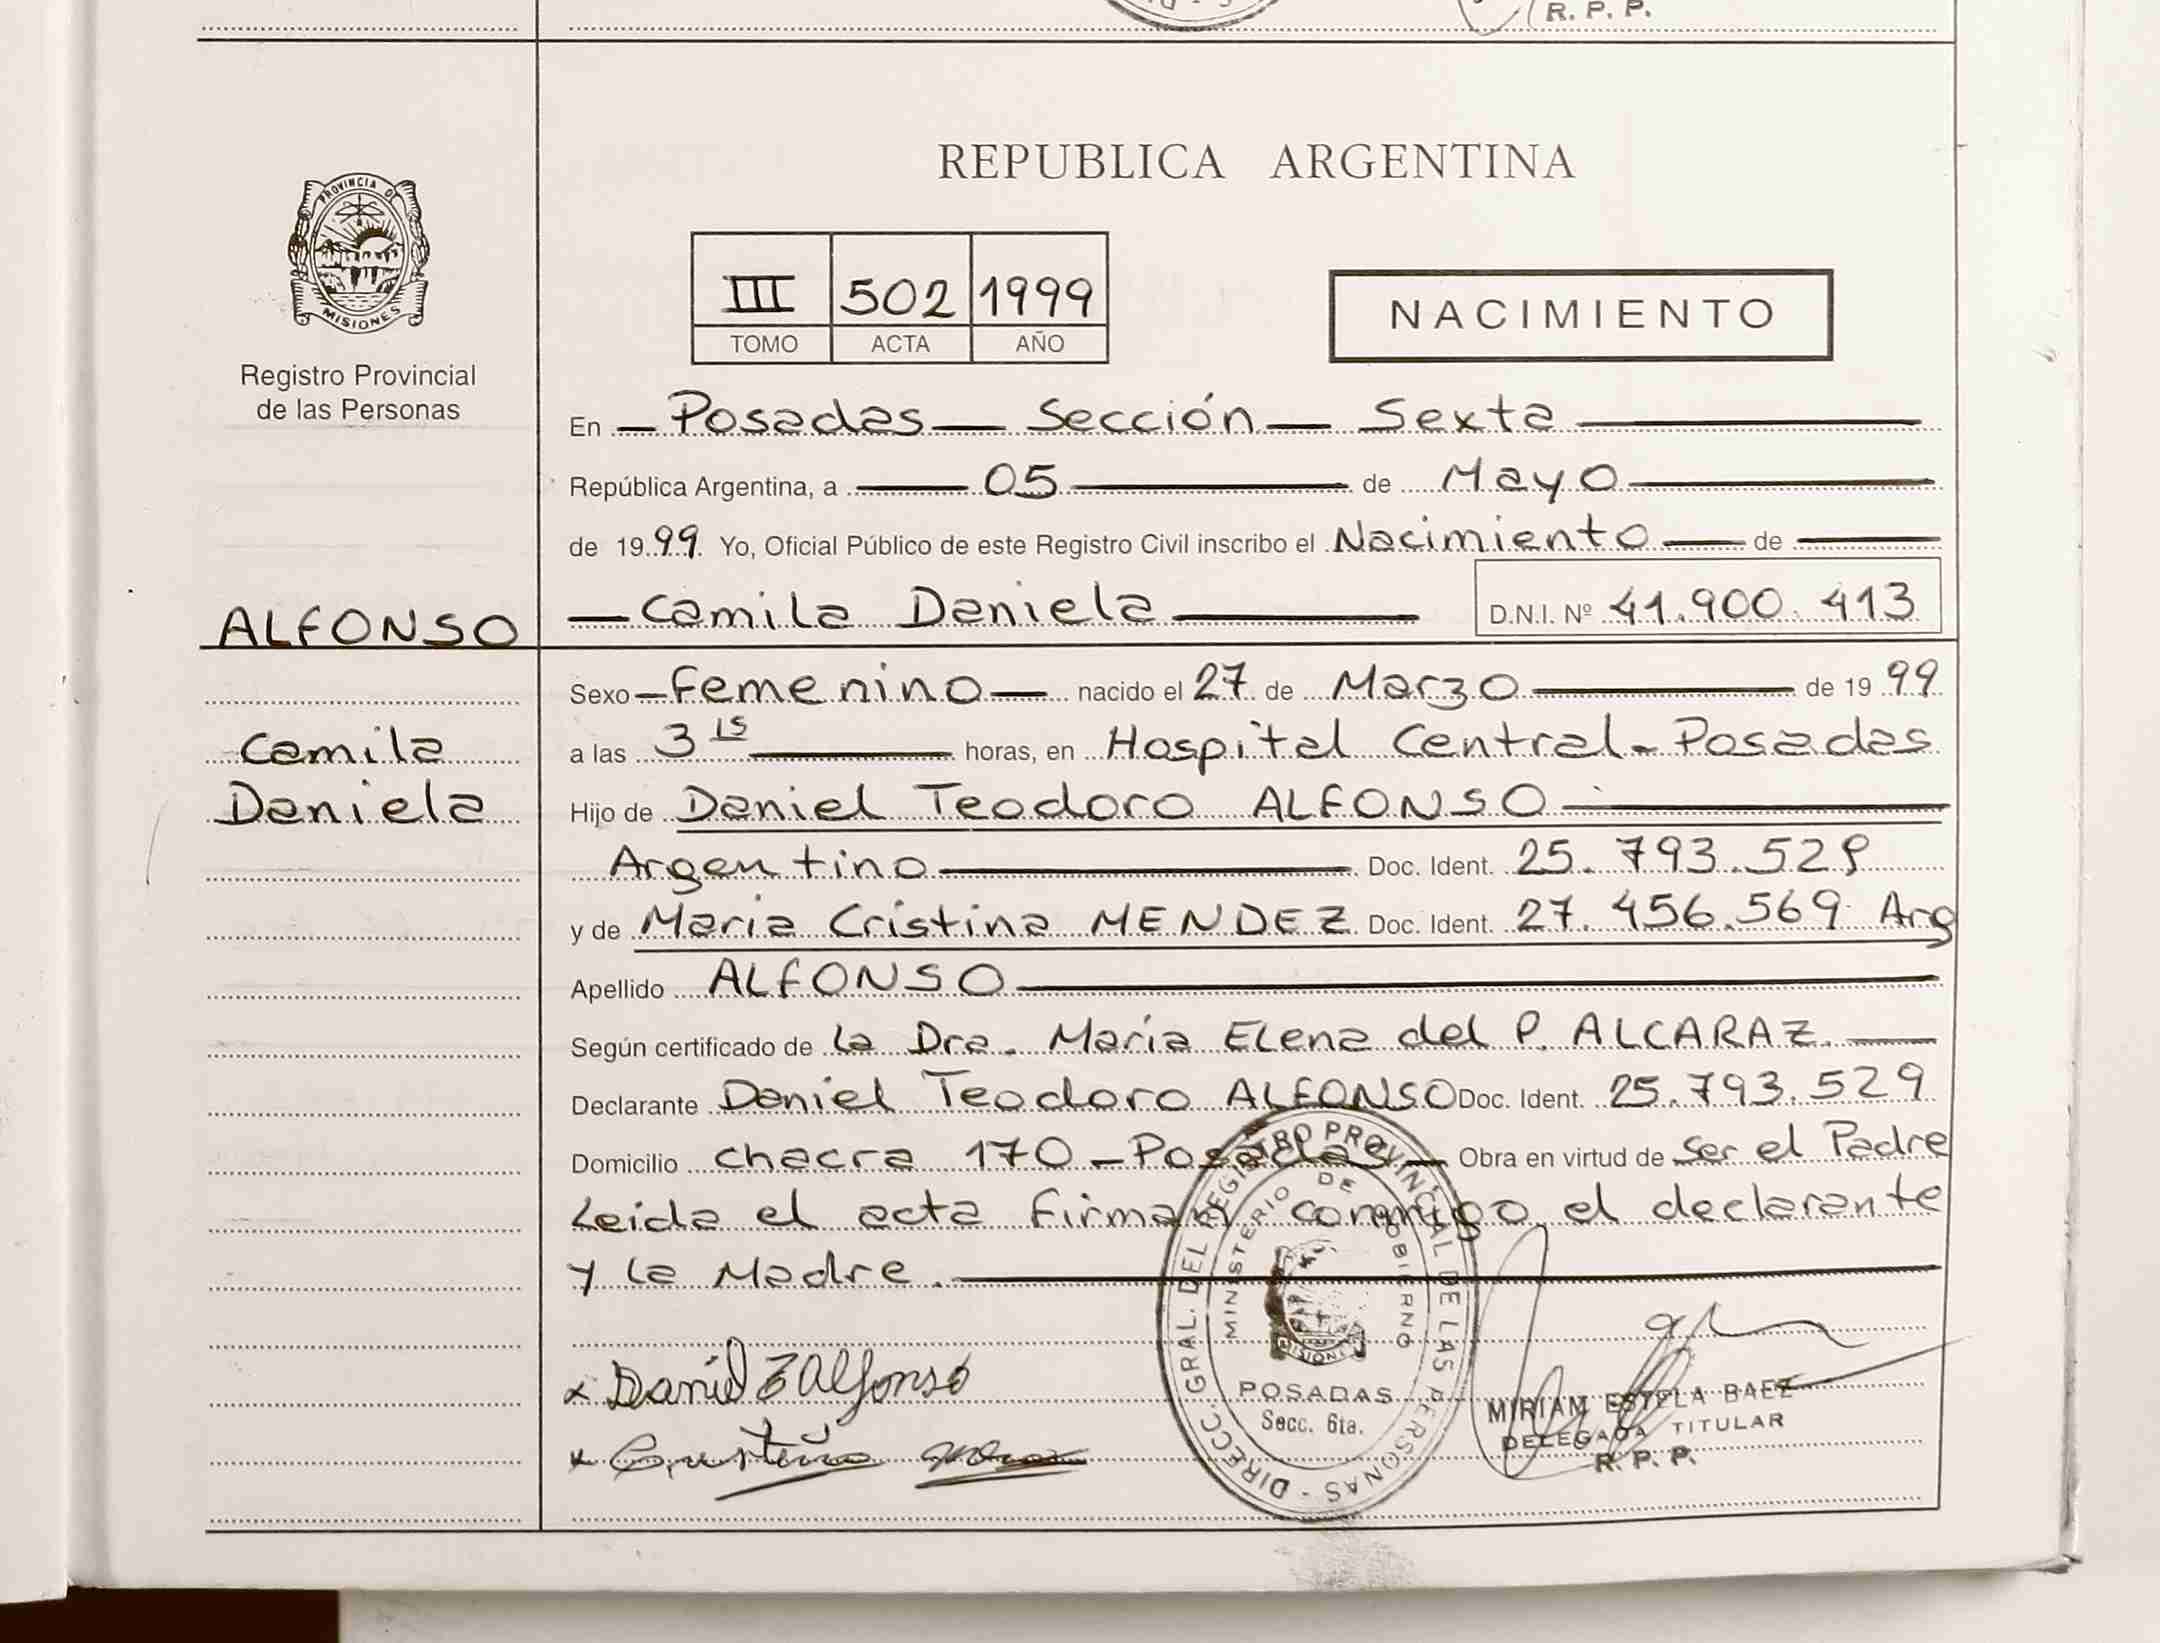 R. P. P.
REPUBLICA ARGENTINA
PROVINCIA DE
MISIONES
Registro Provincial
de las Personas
III 502 1999
TOMO ACTA AÑO
NACIMIENTO
En Posadas — Sección — Sexta
República Argentina, a 05 de Mayo
de 1999 Yo, Oficial Público de este Registro Civil inscribo el Nacimiento de
ALFONSO
Camila Daniela D.N.I. Nº 41.900.413
Sexo Femenino nacido el 27 de Marzo de 1999
Camila
Daniela
a las 3 15 horas, en Hospital Central - Posadas
Hijo de Daniel Teodoro ALFONSO
Argentino Doc. Ident. 25.793.529
y de Maria Cristina MENDEZ Doc. Ident. 27.456.569 Arg
Apellido ALFONSO
Según certificado de la Dra. María Elena del P. ALCARAZ.
Declarante Daniel Teodoro ALFONSO Doc. Ident. 25.793.529
Domicilio chacra 170 - Posadas Obra en virtud de ser el Padre
Leida el acta firman conmigo el declarante
y la Madre.
DIRECC. GRAL. DEL REGISTRO PROVINCIAL DE LAS PERSONAS -
MINISTERIO DE GOBIERNO
MISIONES
POSADAS
Secc. 6ta.
x Daniel T Alfonso
x Cristina
MIRIAM ESTELA BAEZ
DELEGADA TITULAR
R. P. P.